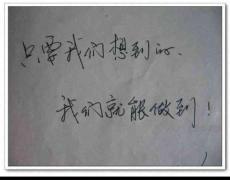 只要我们想到的、
我们就能做到！